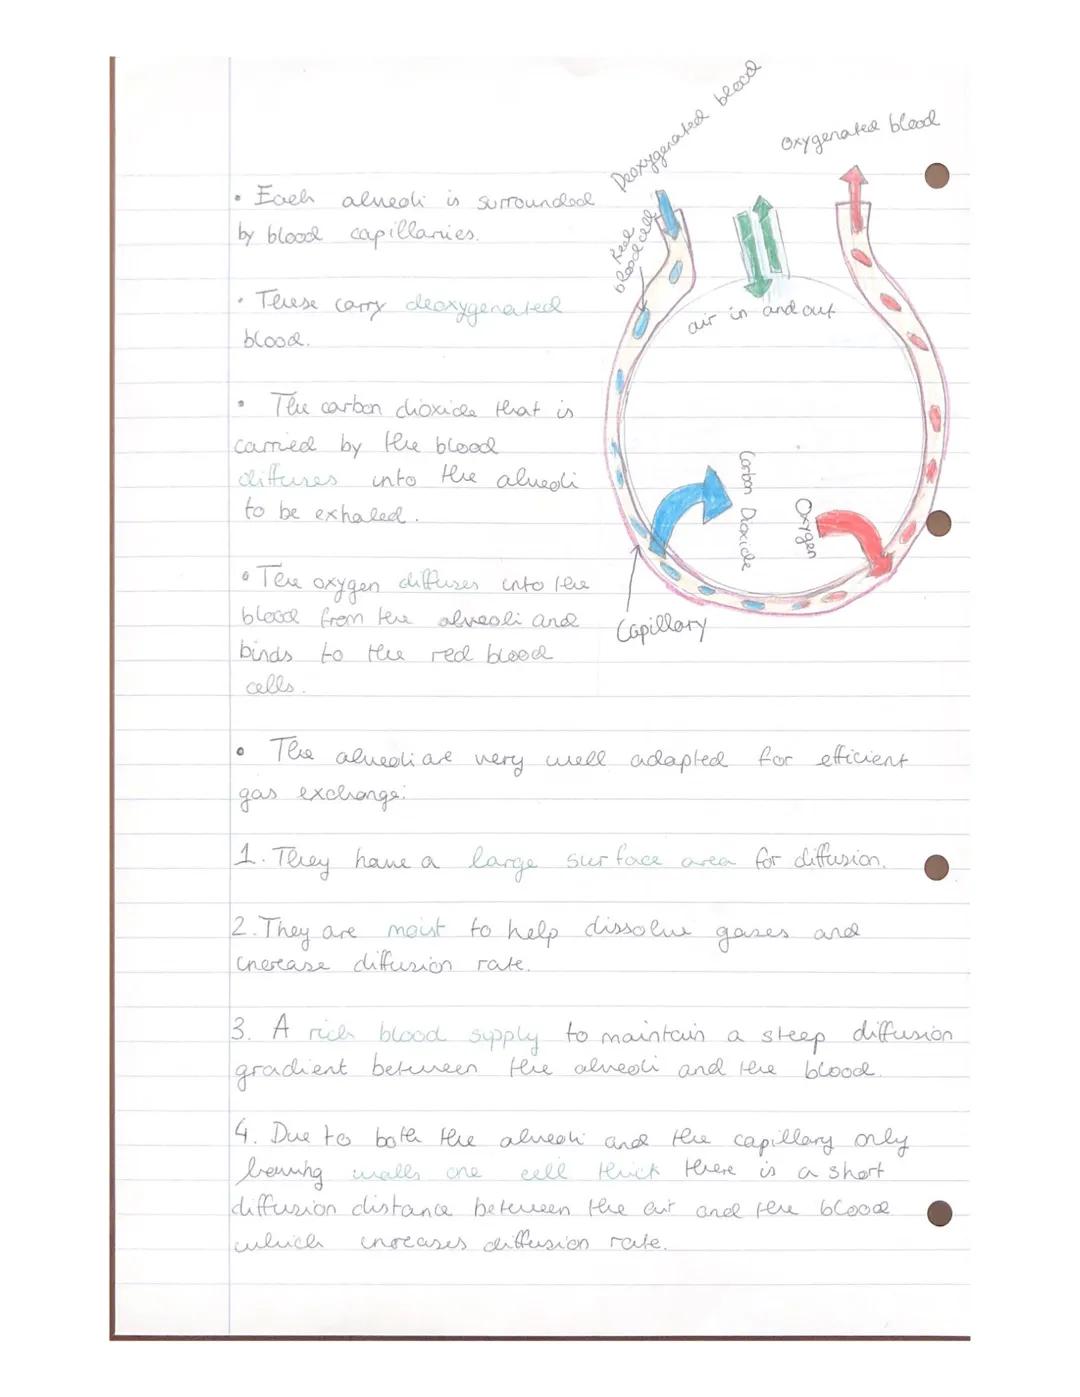 Deoxygenated blood
Oxygenated blood
Red
blood cell
air in and out
Carbon Dioxide
Oxygen
Capillary
• Each alveoli is surrounded
by blood capillaries.
• These carry deoxygenated
blood.
• The carbon dioxide that is
carried by the blood
diffuses into the alveoli
to be exhaled.
• The oxygen diffuses into the
blood from the alveoli and
binds to the red blood
cells.
• The alveoli are very well adapted for efficient
gas exchange:
1. They have a large surface area for diffusion.
2. They are moist to help dissolve gases and
increase diffusion rate.
3. A rich blood supply to maintain a steep diffusion
gradient between the alveoli and the blood.
4. Due to both the alveoli and the capillary only
having walls one cell thick there is a short
diffusion distance between the air and the blood
which increases diffusion rate.